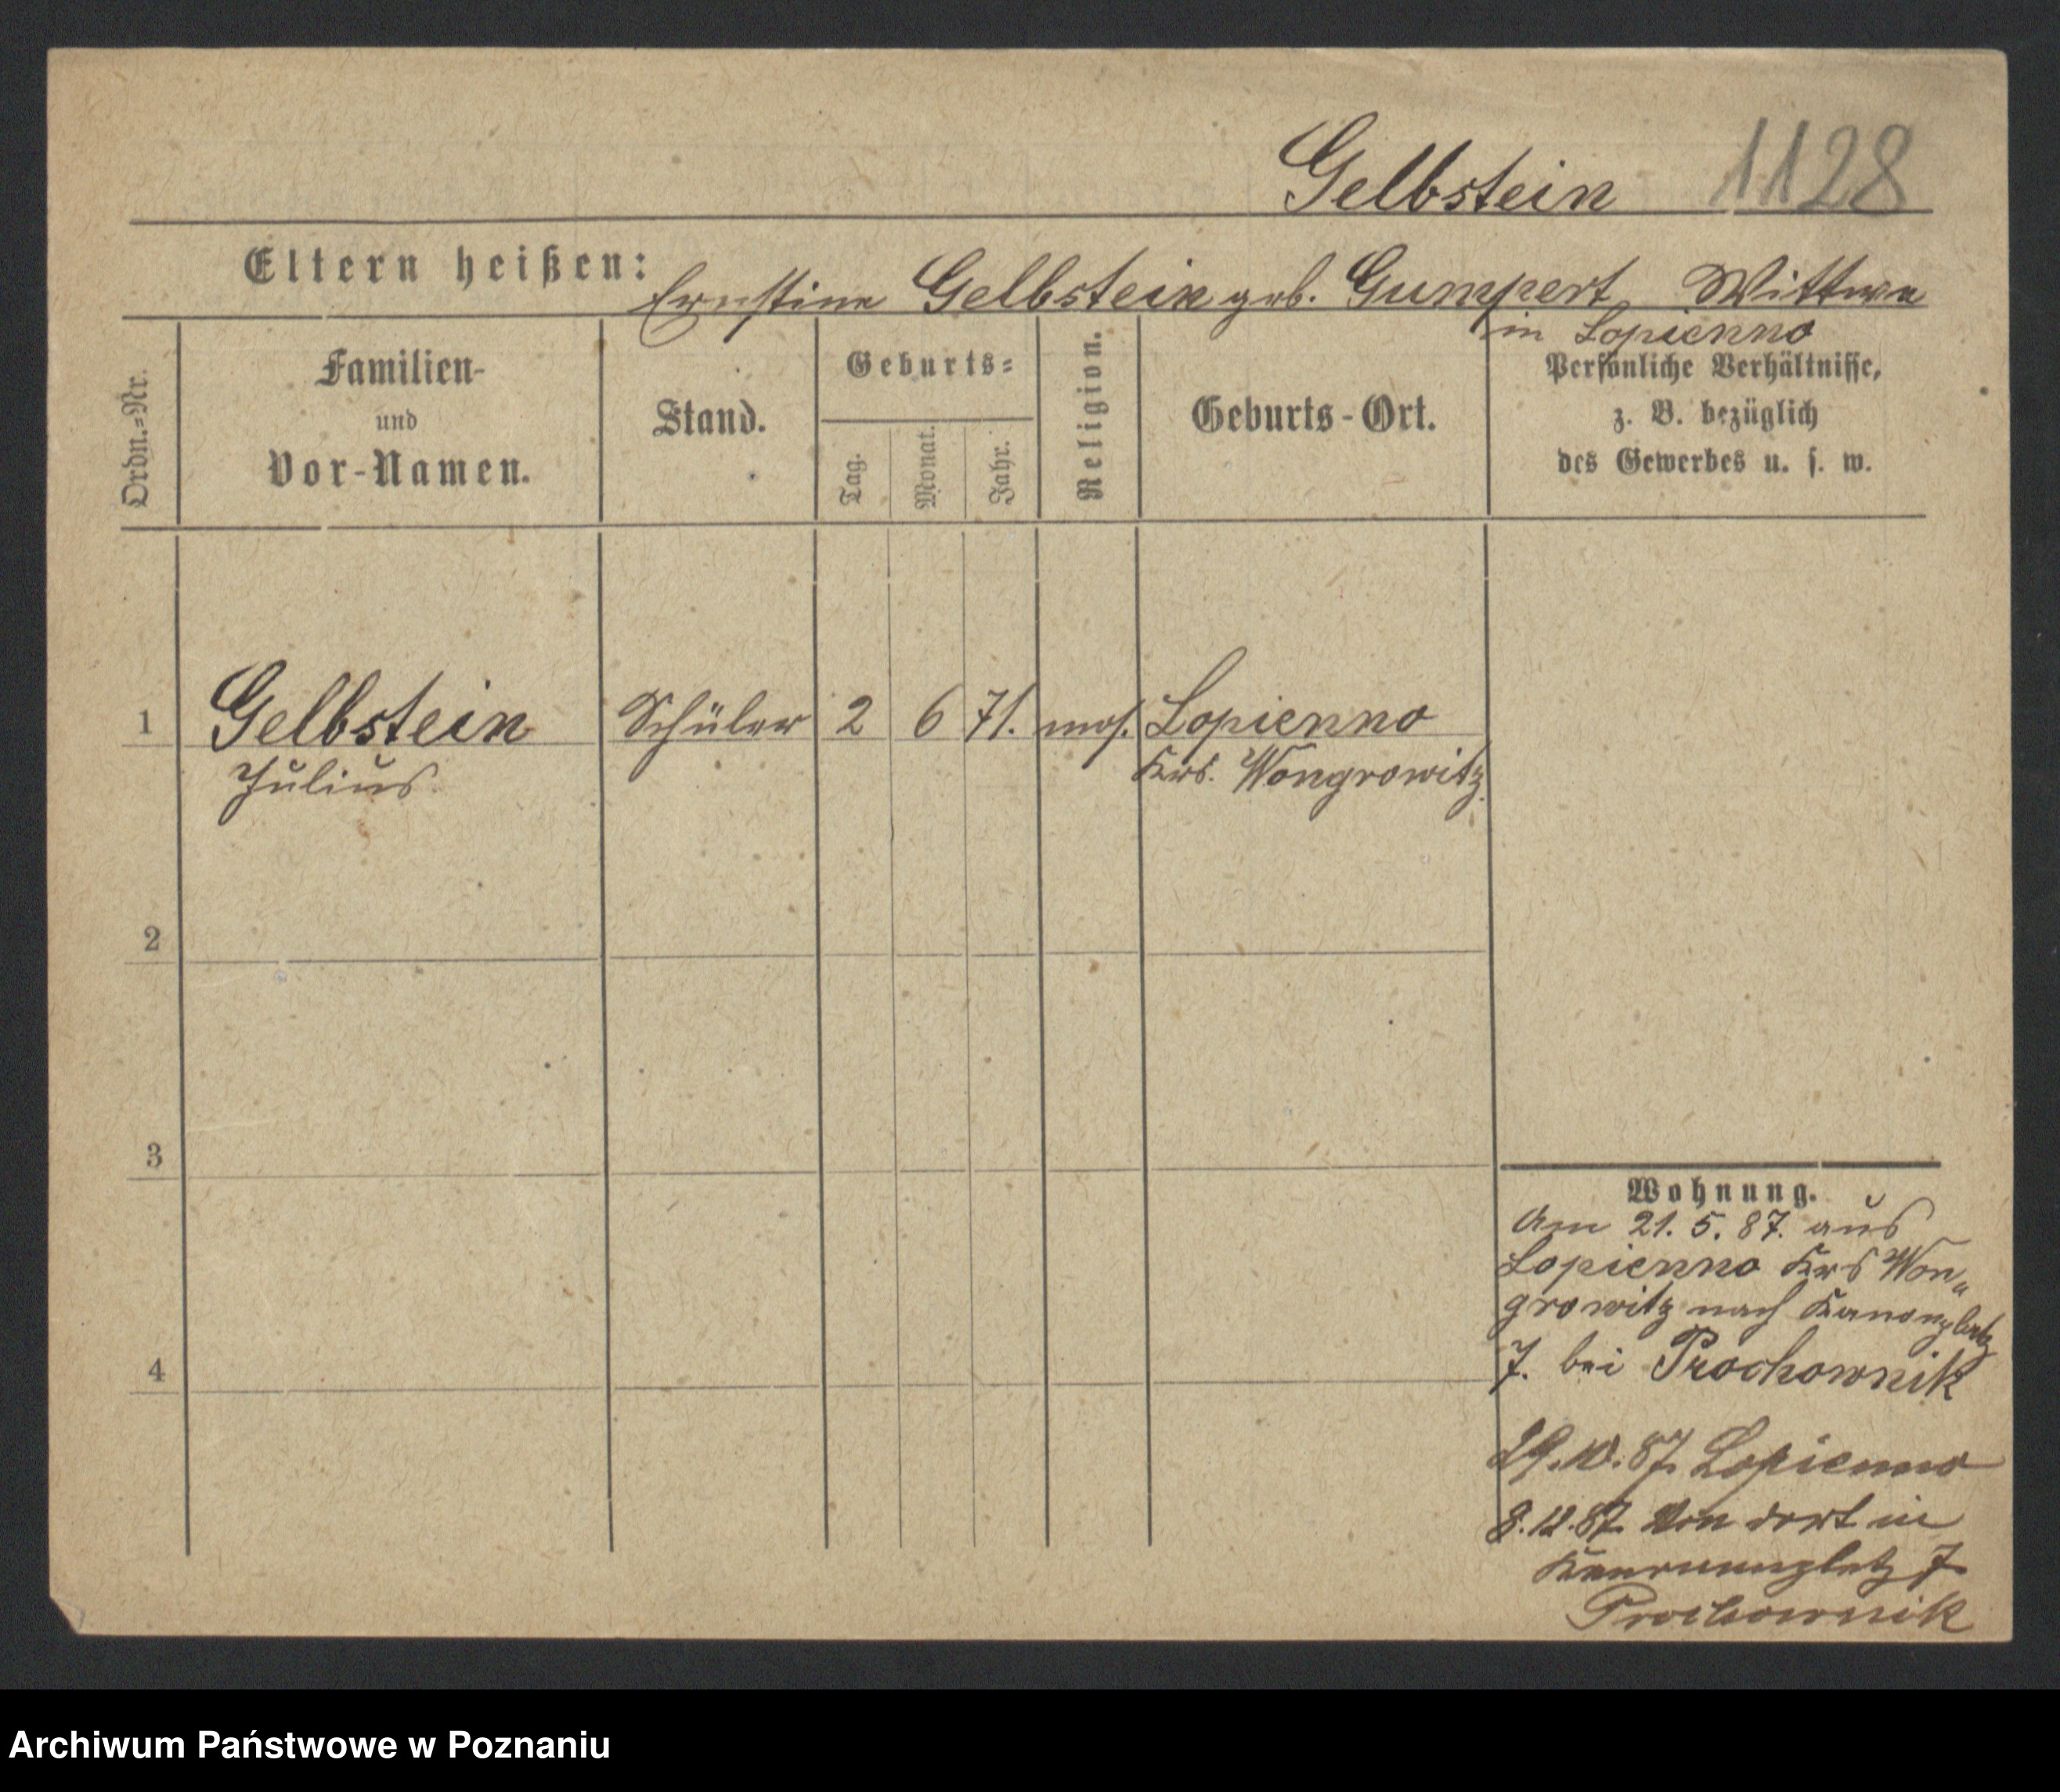 Gelbstein 1128
Eltern heißen: Ernstine Gelbstein geb. Gumpert, Wittwe
in Lopienno
Ordn.=Nr.
Familien-
und
Vor-Namen.
Stand.
Geburts=
Tag.
Monat.
Jahr.
Religion.
Geburts-Ort.
Persönliche Verhältnisse,
z. B. bezüglich
des Gewerbes u. s. w.
1 Gelbstein Schüler 2 6 71. mos. Lopienno
Julius. Krs. Wongrowitz.
2
3
4
Wohnung.
Am 21. 5. 87. aus
Lopienno Krs Won„
growitz nach Kanonplatz
7. bei Prochownik
29.10.87. Lopienno
8.12.87. Von dort in
Kanonenplatz 7
Prochownik
Archiwum Państwowe w Poznaniu